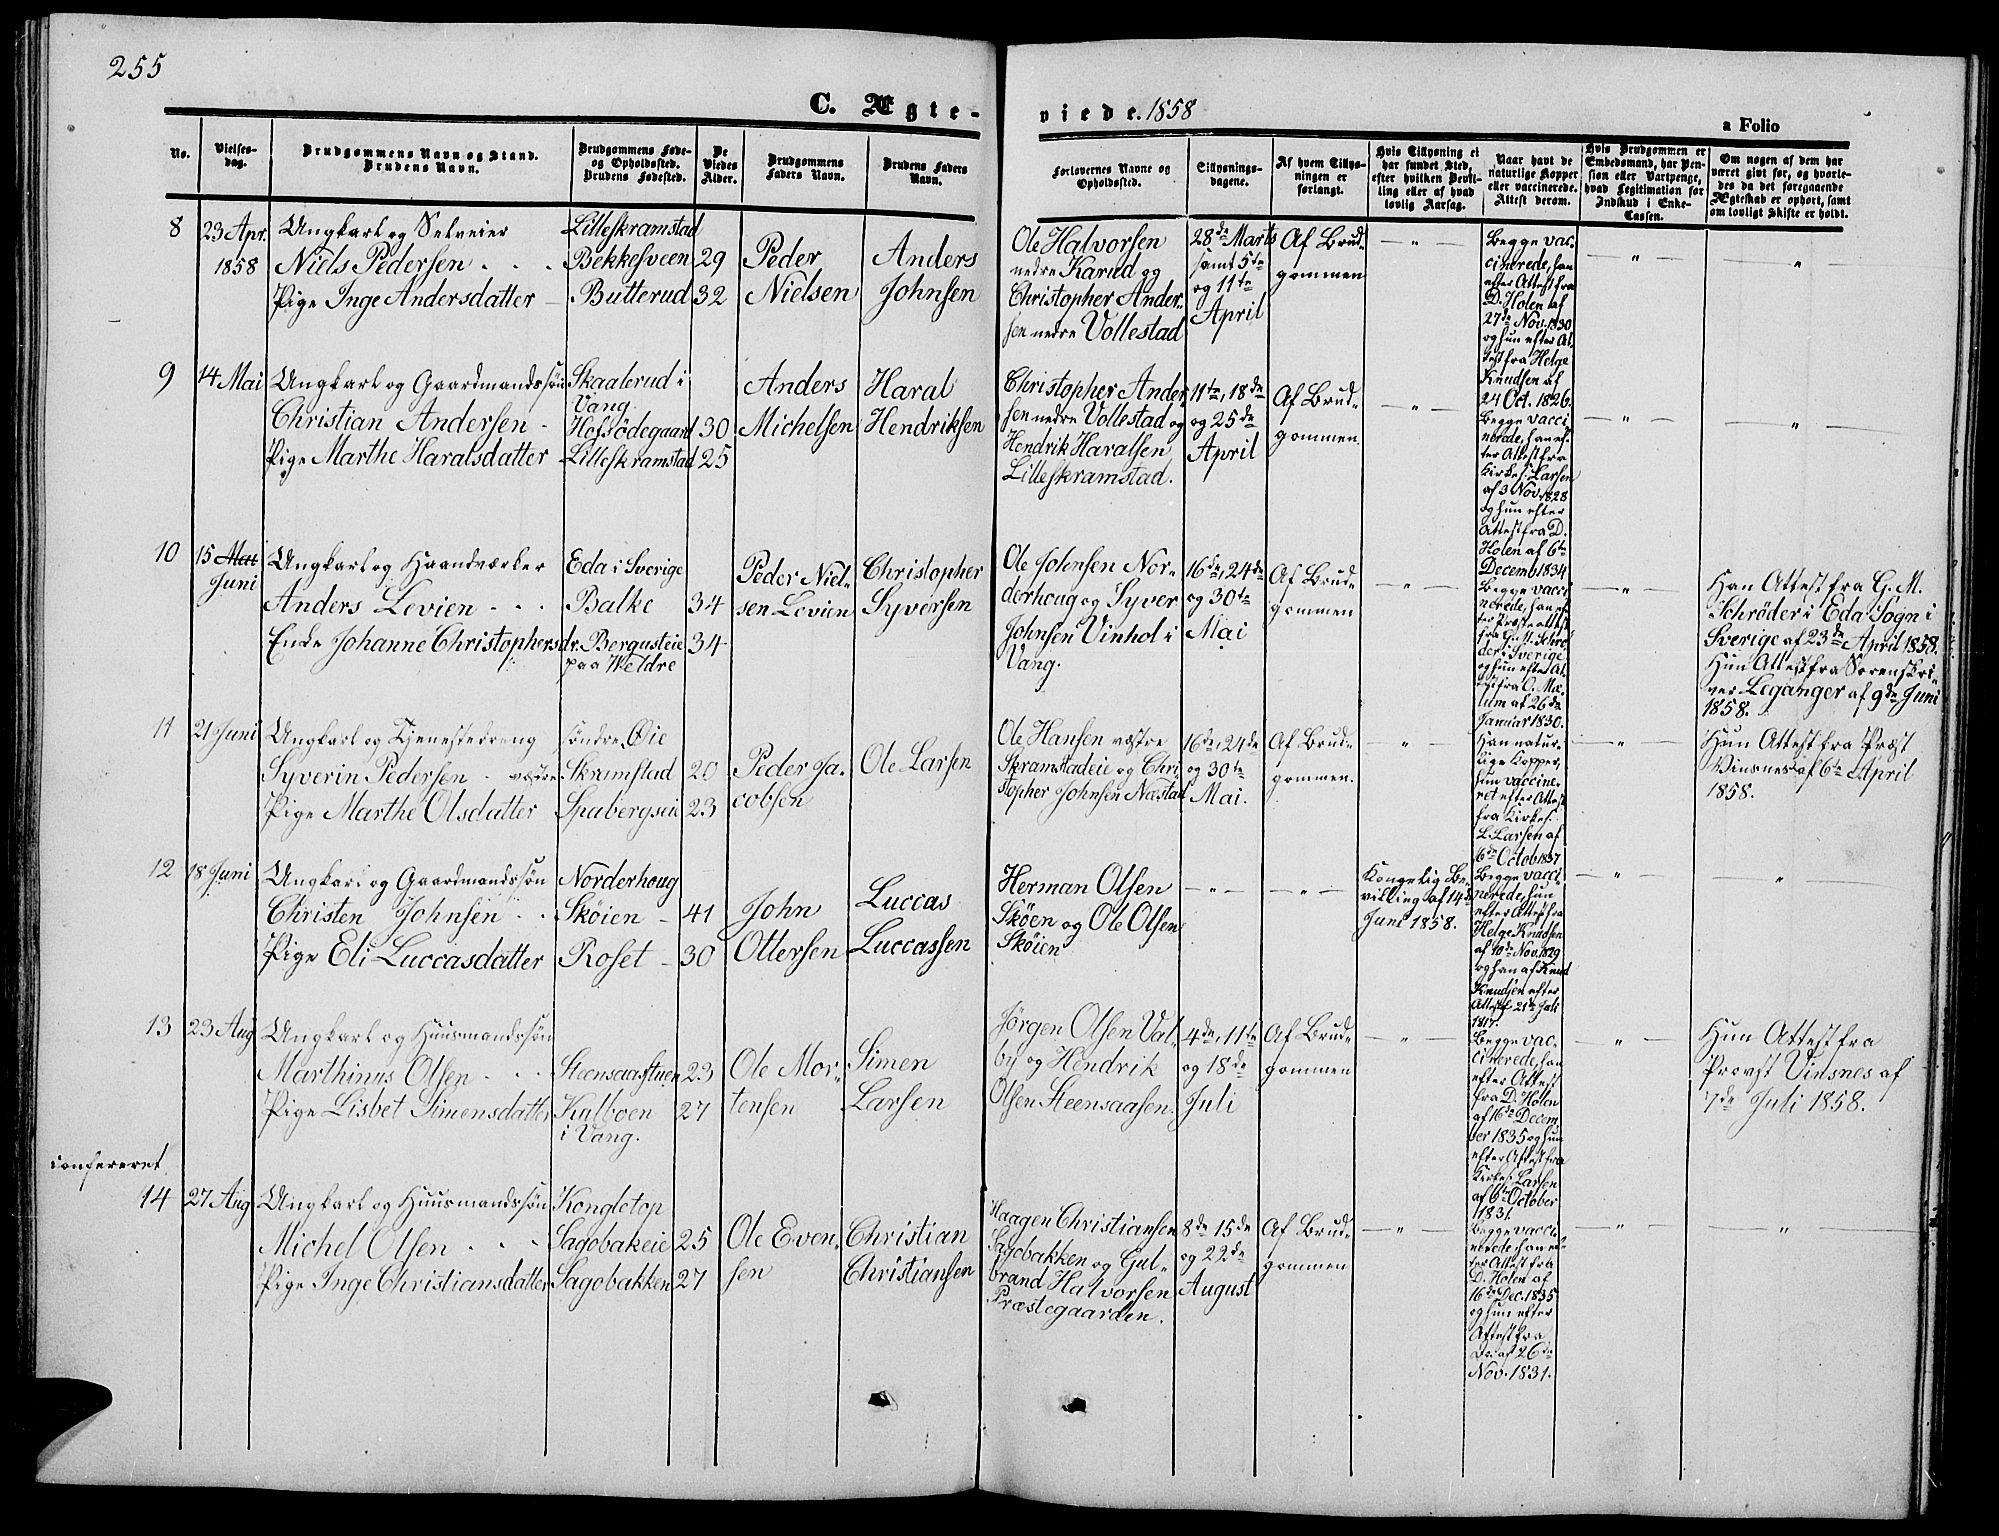 255
C. Ægte-
viede. 1858
a Folio
No.
Vielses-
dag.
Brudgommens Navn og Stand.
Brudens Navn.
Brudgommens Føde-
og Opholdssted.
Brudens Fødested.
De
Viedes
Alder.
Brudgommens
Faders Navn.
Brudens Faders
Navn.
Forlovernes Navne og
Opholdssted.
Tillysnings-
dagene.
Af hvem Tillys-
ningen er
forlangt.
Hvis Tillysning ei
har fundet Sted,
efter hvilken Bevil-
ling eller af hvad
lovlig Aarsag.
Naar havt de
naturlige Kopper
eller vaccinerede.
Attest derom.
Hvis Brudgommen er
Embedsmand, har Pen-
sion eller Vartpenge,
hvad Legitimation for
Indskud i Enke-
Cassen.
Om nogen af dem har
været givt før, og hvorle-
des da det foregaaende
Ægteskab er ophørt, samt
om lovligt Skifte er holdt.
8
23 Apr.
1858
Ungkarl og Selveier
Niels Pedersen
Pige Inge Andersdatter
Lilleskramstad
Bekkesveen
Butterud
29
32
Peder
Nielsen
Anders
Johnsen
Ole Halvorsen
nedre Karud og
Christopher Ander-
sen nedre Vollestad
28de Marts
samt 5te
og 11te
April
Af Brud-
gommen
Begge vac-
cinerede, han
efter Attest fra
D. Holen af
27de Nov. 1830
og hun efter At-
test fra Helge
Knudsen af
24 Oct. 1826.
9
14 Mai
Ungkarl og Gaardmandssøn
Christian Andersen
Pige Marthe Haralsdatter
Skaalerud i
Vang
Hofsødegaard
Lilleskramstad
30
25
Anders
Michelsen
Haral
Hendriksen
Christopher Ander-
sen nedre Vollestad og
Hendrik Haralsen
Lilleskramstad.
11te, 18de
og 25de
April
Af Brud-
gommen.
Begge vacci
nerede, han ef-
ter Attest fra
Kirkes. Larsen
af 3 Nov. 1828
og hun efter
Attest fra D.
Holen af 6te
Decemb 1834
10
15 Mai
Juni
Ungkarl og Haandværker
Anders Levien
Enke Johanne Christophersdr.
Eda i Sverige
Balke
Bergusteie
paa Heldre
34
34
Peder Niel-
sen Levien
Christopher
Syversen
Ole Johnsen Nor-
derhoug og Syver
Johnsen Vinhol i
Vang.
16de, 24de
og 30te
Mai
Af Brud-
gommen
Begge vacci
nerede, han ef-
ter Præsteattest
fra G. M. Schrø-
der i Sverige
og hun efter At-
test fra O. Mæ-
lum af 26de
Januar 1830.
Han Attest fra G. M.
Schrøder i Eda Sogn i
Sverige af 23de April 1858.
Hun Attest fra Sorenskri-
ver Leganger af 9de Juni
1858.
11
21 Juni
Ungkarl og Tjenestedreng
Syverin Pedersen
Pige Marthe Olsdatter
søndre Øie
vestre Skramstad
Spabergseie
20
23
Peder Ja-
cobsen
Ole Larsen
Ole Hansen vestre
Skramstadeie og Chri-
stopher Johnsen Næstad
16de, 24de
og 30te
Mai.
Af Brud-
gommen.
Han natur-
lige Kopper,
hun vaccine-
ret efter Attest
fra Kirkes.
L. Larsen af
6te Octob 1837
Hun Attest fra Præst
Vinsnes af 6te April
1858.
12
18 Juni
Ungkarl og Gaardmandssøn
Christen Johnsen
Pige Eli Luccasdatter
Norderhoug
Skøien
Roset
41
30
John
Ottersen
Luccas
Luccassen
Herman Olsen
Skøen og Ole Olsen
Skøien
Kongelig Be-
villing af 14de
Juni 1858.
Begge vacci
nerede, hun
efter Attest fra
Helge Knudsen
af 10de Nov. 1829
og han af Knud
Knudsen efter
Attest 21te Juli
1817.
13
23 Aug
Ungkarl og Huusmandssøn
Marthinus Olsen
Pige Lisbet Simensdatter
Steensaastuen
Kalboen
i Vang.
23
27
Ole Mor-
tensen
Simen
Larsen
Jørgen Olsen Val-
by og Hendrik
Olsen Steensaasen.
4de, 11te
og 18de
Juli
Af Brud-
gommen
Begge vac-
cinerede, han
efter Attest
fra D. Holen
af 16de Decem-
ber 1835 og hun
efter Attest fra
Kirkes. Larsen
af 6te October
1831.
Hun Attest fra
Provst Vinsnes af
7de Juli 1858.
confereret
14
27 Aug
Ungkarl og Huusmandssøn
Michel Olsen
Pige Inge Christiansdatter
Kongletop
Sagobakeie
Sagobakken
25
27
Ole Even-
sen
Christian
Christiansen
Haagen Christiansen
Sagobakken og Gul-
brand Halvorsen
Præstegaarden.
8de 15de
og 22de
August
Af Brud-
gommen
Begge vacci
nerede, han ef-
ter Attest fra
D. Holen af
16de Dec. 1835
og hun efter
Attest fra
Do. af 26de
Nov. 1831.